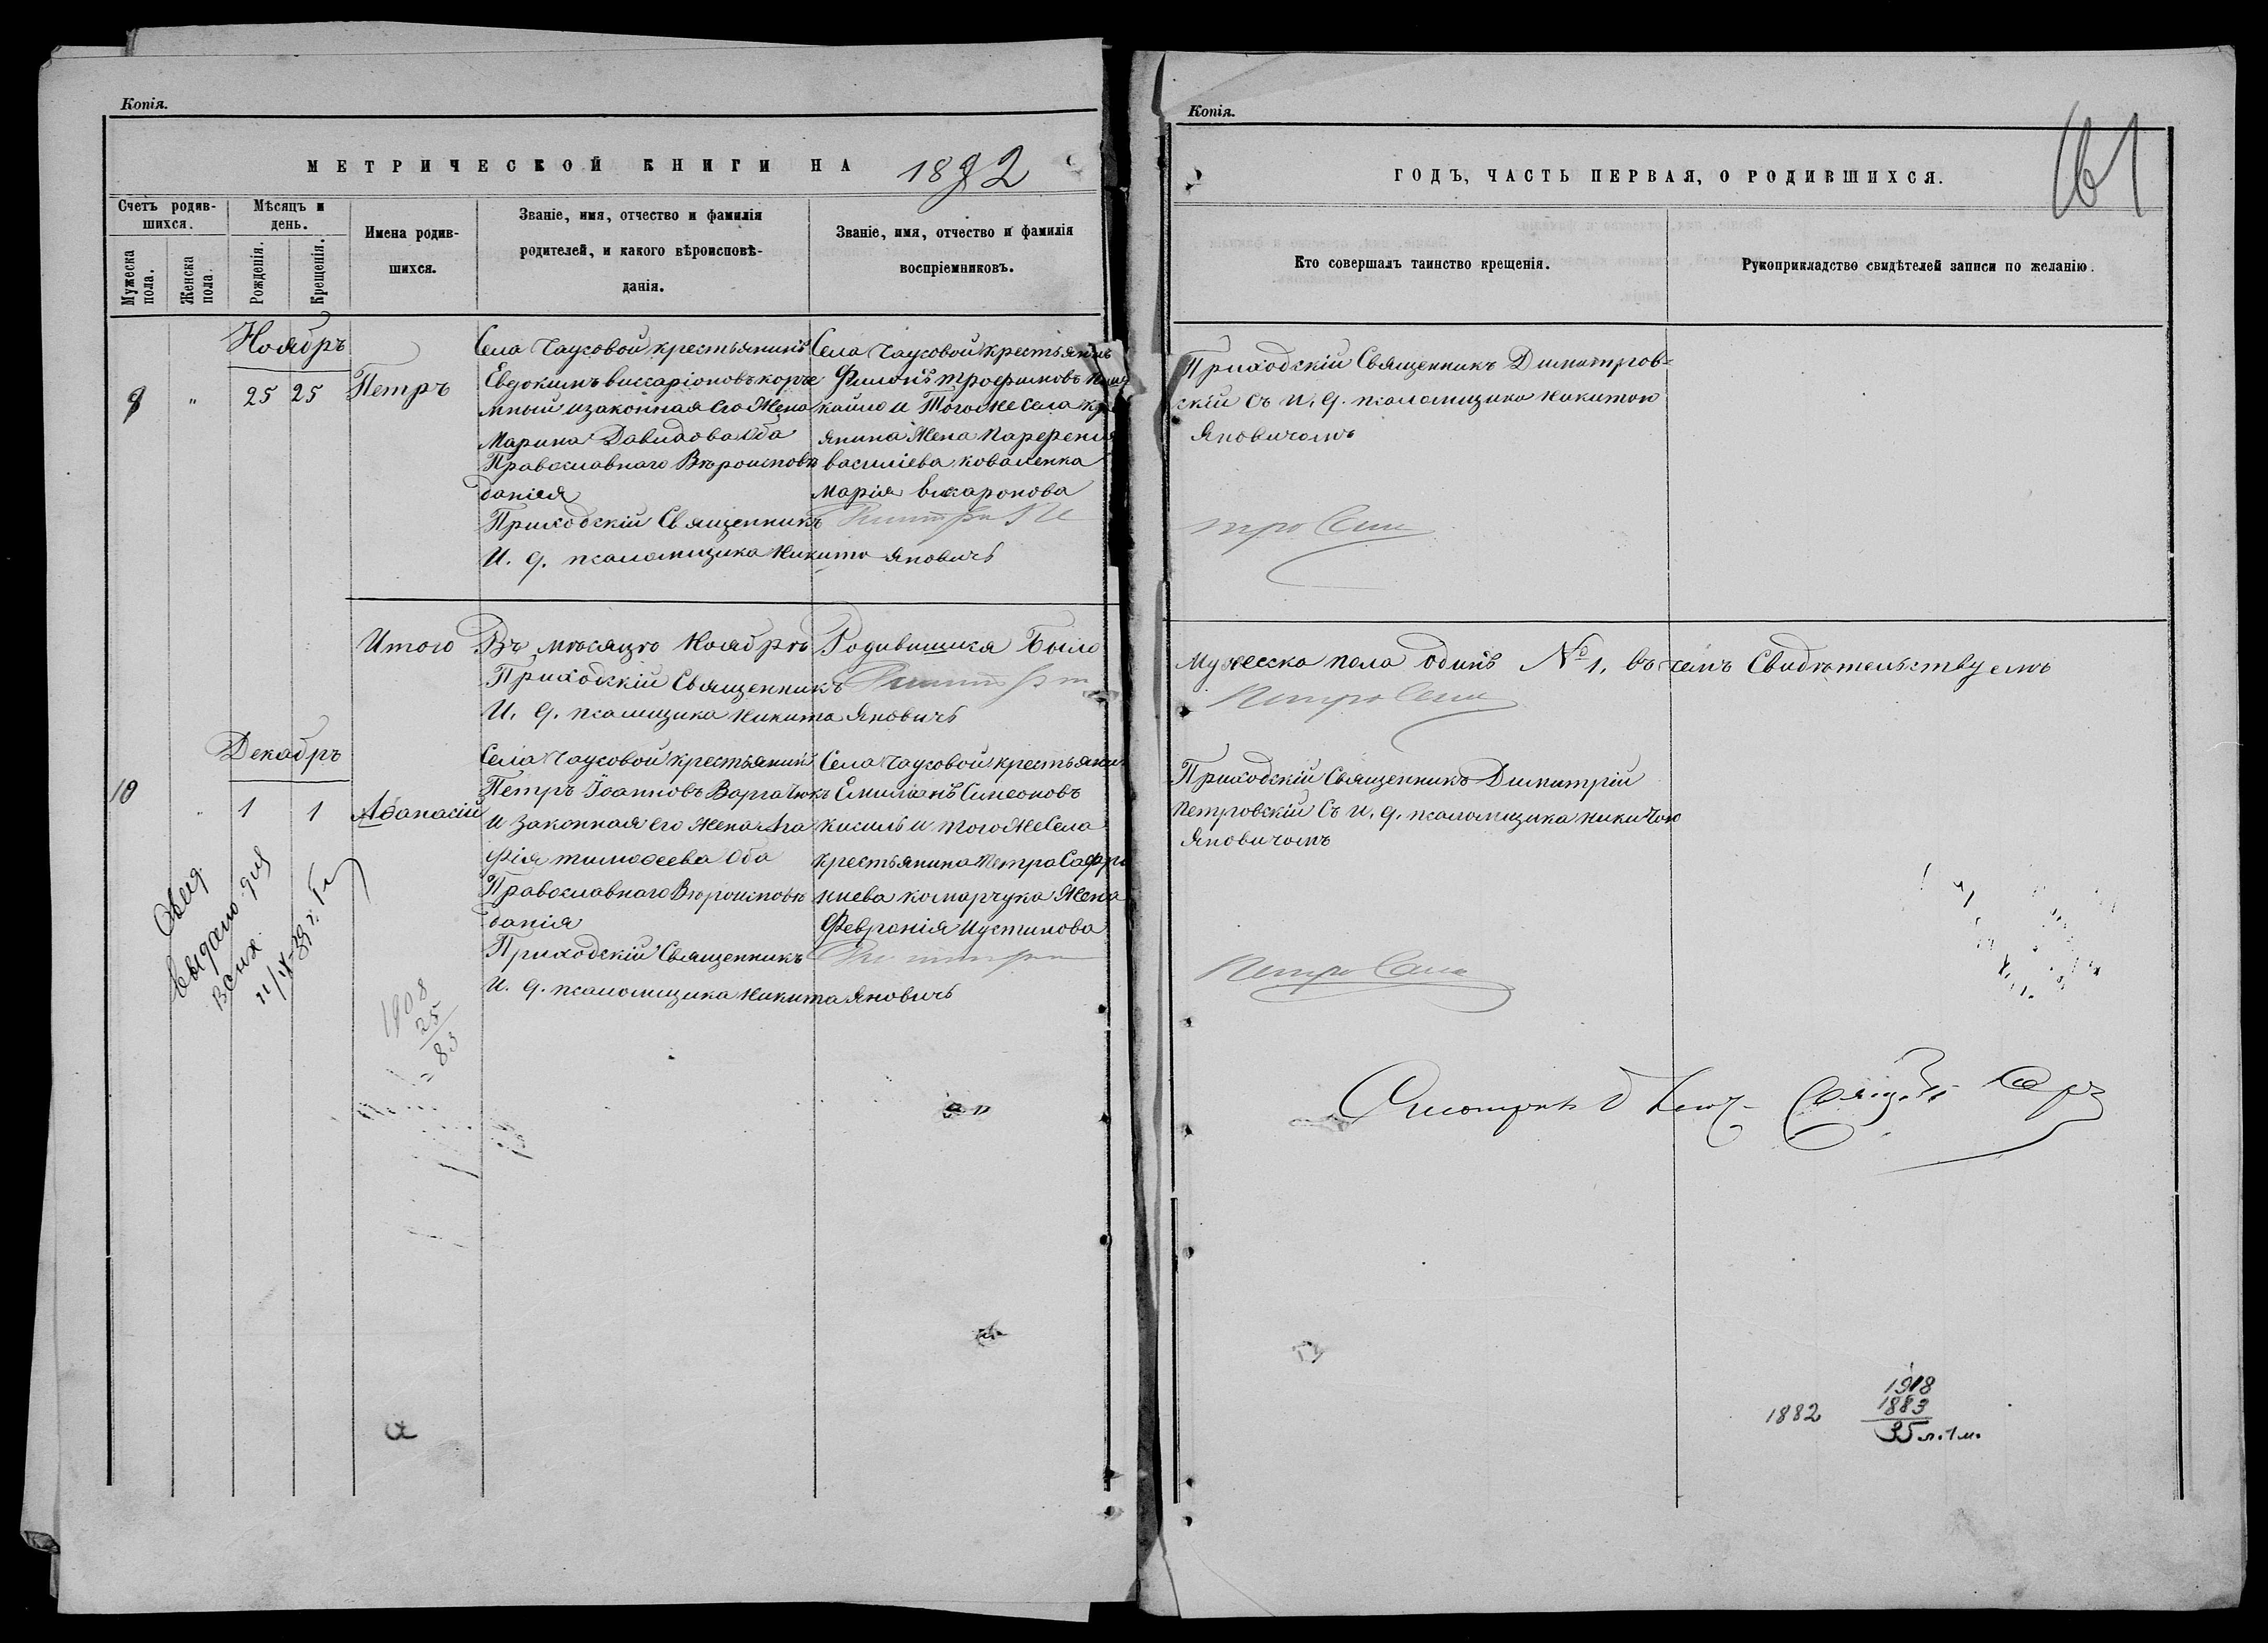 Копія.
МЕТРИЧЕСКОЙ КНИГИ НА 1882
Счетъ родив-
шихся.
Мѣсяцъ и
день.
Мужеска
пола.
Женска
пола.
Рожденія.
Крещенія.
Имена родив-
шихся.
Званіе, имя, отчество и фамилія
родителей, и какого вѣроисповѣ-
данія.
Званіе, имя, отчество и фамилія
воспріемниковъ.
Ноябръ
9 " 25 25 Петръ
Села Чаусовой крестьянинъ
Евдокимъ виссаріоновъ
и законная его Жена
Марина Давидова Оба
Православнаго Вѣроисповѣ
данія
Приходскій Священникъ
И. д. псаломщика Никита Яновичъ
Села Чаусовой крестьянинъ
Филипъ трофимовъ
и Того Же Села
янина Жена
василіева коваленка
марія
Итого Въ мѣсяцѣ Ноябрѣ Родившихся Было
Приходскій Священникъ
И. д. псаломщика Никита Яновичъ
Декабръ
10 " 1 1 Афанасій
Села Чаусовой крестьянинъ
Петръ Іоанновъ Варгачюкъ
и законная его Жена Ага
фія тимофеева Оба
Православнаго Вѣроисповѣ
данія
Приходскій Священникъ
И. д. псаломщика Никита Яновичъ
Села Чаусовой крестьянинъ
Емиліанъ Симеоновъ
кисиль и того Же Села
крестьянина Петра Сафро
ніева комарчука Жена
Февронія Иустинова
выдано для
1908
25
83
Копія.
61
ГОДЪ, ЧАСТЬ ПЕРВАЯ, О РОДИВШИХСЯ.
Кто совершалъ таинство крещенія.
Рукоприкладство свидѣтелей записи по желанію.
Приходскій Священникъ
скій съ И. д. псаломщика Никитою
Яновичомъ
Мужеска пола одинъ № 1. въ чемъ Свидѣтельствуемъ
Приходскій Священникъ Димитрій
Петровскій Съ и. д. псаломщика Никитою
Яновичомъ
1882
1918
1883
35 л. 1 м.